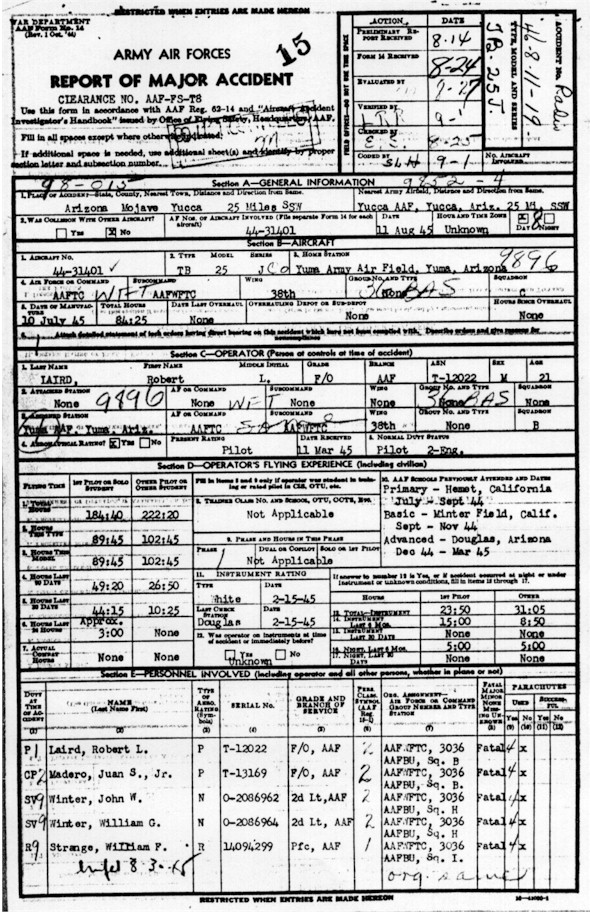 RESTRICTED WHEN ENTRIES ARE MADE HEREON
WAR DEPARTMENT
AAF Form No. 14
(Rev. 1 Oct. '44)
ARMY AIR FORCES
15
REPORT OF MAJOR ACCIDENT
CLEARANCE NO. AAF-FS-T8
Use this form in accordance with AAF Reg. 62-14 and "Aircraft Accident
Investigator's Handbook" issued by Office of Flying Safety, Headquarters, AAF.
Fill in all spaces except where otherwise indicated.
If additional space is needed, use additional sheet(s) and identify by proper
section letter and subsection number.
ACTION DATE
PRELIMINARY REPORT RECEIVED 8-14
FORM 14 RECEIVED 8-24
EVALUATED BY
VERIFIED BY 9-1
CHECKED BY 8-25
CODED BY SLH 9-1
ACCIDENT NO. 46-8-11-19
TYPE, MODEL AND SERIES TB-25J
NO. AIRCRAFT INVOLVED
98-015 Section A—GENERAL INFORMATION 9852-4
1. PLACE OF ACCIDENT—State, County, Nearest Town, Distance and Direction from Same. Nearest Army Airfield, Distance and Direction from Same.
Arizona Mojave Yucca 25 Miles SSW Yucca AAF, Yucca, Ariz. 25 Mi. SSW
2. WAS COLLISION WITH OTHER AIRCRAFT? AF NOS. OF AIRCRAFT INVOLVED (File separate Form 14 for each aircraft) DATE HOUR AND TIME ZONE
Yes X No 44-31401 11 Aug 45 Unknown DAY NIGHT
Section B—AIRCRAFT
1. AIRCRAFT NO. 2. TYPE MODEL SERIES 3. HOME STATION 9896
44-31401 TB 25 J Yuma Army Air Field, Yuma, Arizona
4. AIR FORCE OR COMMAND SUBCOMMAND WING GROUP NO. AND TYPE SQUADRON
AAFTC WFT AAFWFTC 38th None BAS C
5. DATE OF MANUFACTURE TOTAL HOURS DATE LAST OVERHAUL OVERHAULING DEPOT OR SUB-DEPOT HOURS SINCE OVERHAUL
10 July 45 84:25 None None None
Section C—OPERATOR (Person at controls at time of accident)
1. LAST NAME FIRST NAME MIDDLE INITIAL GRADE BRANCH ASN SEX AGE
LAIRD, Robert L. F/O AAF T-12022 M 21
2. ATTACHED STATION AF OR COMMAND SUBCOMMAND WING GROUP NO. AND TYPE SQUADRON
None 9896 None WFT None None None BAS None
3. ASSIGNED STATION AF OR COMMAND SUBCOMMAND WING GROUP NO. AND TYPE SQUADRON
Yuma AAF, Yuma, Ariz. AAFTC AAFWFTC 38th None B
4. AERONAUTICAL RATING? X Yes No PRESENT RATING DATE RECEIVED 5. NORMAL DUTY STATUS
Pilot 11 Mar 45 Pilot 2-Eng.
Section D—OPERATOR'S FLYING EXPERIENCE (Including civilian)
FLYING TIME 1ST PILOT OR SOLO STUDENT OTHER PILOT OR OTHER STUDENT
1. TOTAL HOURS 184:40 222:20
2. HOURS THIS TYPE 89:45 102:45
3. HOURS THIS MODEL 89:45 102:45
4. HOURS LAST 90 DAYS 49:20 26:50
5. HOURS LAST 30 DAYS 44:15 10:25
6. HOURS LAST 24 HOURS Approx. 3:00 None
7. ACTUAL COMBAT HOURS None None
Fill in Items 8 and 9 only if operator was student in training or rated pilot in CIS, OTU, etc.
8. TRAINEE CLASS NO. AND SCHOOL, OTU, CCTS, Etc.
Not Applicable
9. PHASE AND HOURS IN THIS PHASE
PHASE DUAL OR COPILOT SOLO OR 1ST PILOT
Not Applicable
11. INSTRUMENT RATING
TYPE DATE
White 2-15-45
LAST CHECK STATION DATE
Douglas 2-15-45
12. Was operator on instruments at time of accident or immediately before?
Yes No
Unknown
10. AAF SCHOOLS PREVIOUSLY ATTENDED AND DATES
Primary - Hemet, California
July - Sept 44
Basic - Minter Field, Calif.
Sept - Nov 44
Advanced - Douglas, Arizona
Dec 44 - Mar 45
If answer to number 12 is Yes, or if accident occurred at night or under instrument or unknown conditions, fill in items 13 through 17.
HOURS 1ST PILOT OTHER
13. TOTAL—INSTRUMENT 23:50 31:05
14. INSTRUMENT LAST 6 MOS. 15:00 8:50
15. INSTRUMENT LAST 30 DAYS None None
16. NIGHT, LAST 6 MOS. 5:00 5:00
17. NIGHT, LAST 30 DAYS None None
Section E—PERSONNEL INVOLVED (Including operator and all other persons, whether in plane or not)
DUTY AT TIME OF ACCIDENT NAME (Last Name First) TYPE OF AERO. RATING (Symbols) SERIAL NO. GRADE AND BRANCH OF SERVICE PERS. CLASS. SYMBOL ORG. ASSIGNMENT—AIR FORCE OR COMMAND GROUP NUMBER AND TYPE STATION FATAL MAJOR MINOR NONE MISSING UNKNOWN PARACHUTES USED SUCCESSFUL
(1) (2) (3) (4) (5) (6) (7) (8) Yes (9) No (10) Yes (11) No (12)
P 1 Laird, Robert L. P T-12022 F/O, AAF 2 AAFWFTC, 3036 Fatal 4 x
AAFBU, Sq. B
CP 2 Madero, Juan S., Jr. P T-13169 F/O, AAF 2 AAFWFTC, 3036 Fatal 4 x
AAFBU, Sq. B.
SV 9 Winter, John W. N O-2086962 2d Lt, AAF 2 AAFWFTC, 3036 Fatal 4 x
AAFBU, Sq. H
SV 9 Winter, William G. N O-2086964 2d Lt, AAF 2 AAFWFTC, 3036 Fatal 4 x
AAFBU, Sq. H
R 9 Strange, William F. R 14094299 Pfc, AAF 1 AAFWFTC, 3036 Fatal 4 x
AAFBU, Sq. I.
RESTRICTED WHEN ENTRIES ARE MADE HEREON